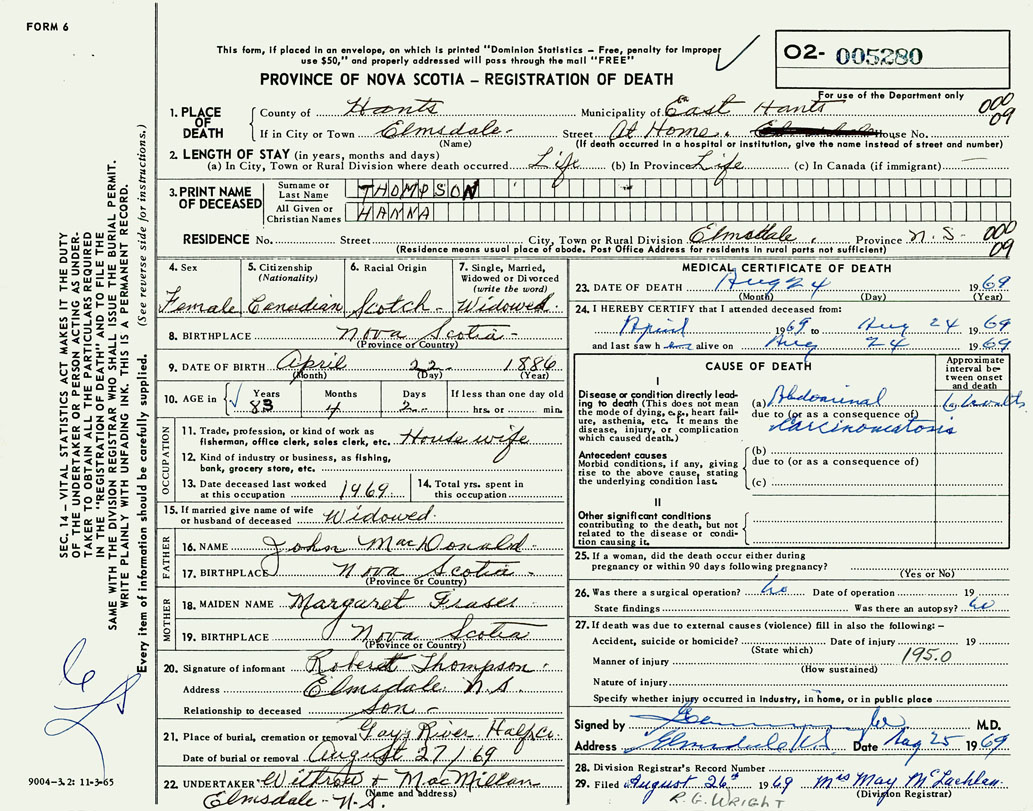 FORM 6
This form, if placed in an envelope, on which is printed "Dominion Statistics – Free, penalty for improper
use $50," and properly addressed will pass through the mail "FREE"
PROVINCE OF NOVA SCOTIA – REGISTRATION OF DEATH
O2- 005280
For use of the Department only
1. PLACE OF DEATH
County of Hants Municipality of East Hants 000
If in City or Town Elmsdale Street At Home House No. 09
(Name) (If death occurred in a hospital or institution, give the name instead of street and number)
2. LENGTH OF STAY (in years, months and days)
(a) In City, Town or Rural Division where death occurred Life (b) In Province Life (c) In Canada (if immigrant) —
3. PRINT NAME OF DECEASED
Surname or Last Name THOMPSON
All Given or Christian Names HANNA
RESIDENCE No. Street City, Town or Rural Division Elmsdale Province N.S. 000
(Residence means usual place of abode. Post Office Address for residents in rural parts not sufficient) 09
4. Sex Female
5. Citizenship (Nationality) Canadian
6. Racial Origin Scotch
7. Single, Married, Widowed or Divorced (write the word) Widowed
8. BIRTHPLACE Nova Scotia
(Province or Country)
9. DATE OF BIRTH April 22 1886
(Month) (Day) (Year)
10. AGE in Years Months Days If less than one day old
83 4 2 hrs. or min.
OCCUPATION
11. Trade, profession, or kind of work as
fisherman, office clerk, sales clerk, etc. House wife
12. Kind of industry or business, as fishing,
bank, grocery store, etc.
13. Date deceased last worked at this occupation 1969
14. Total yrs. spent in this occupation
15. If married give name of wife
or husband of deceased Widowed
FATHER
16. NAME John MacDonald
17. BIRTHPLACE Nova Scotia
(Province or Country)
MOTHER
18. MAIDEN NAME Margaret Fraser
19. BIRTHPLACE Nova Scotia
(Province or Country)
20. Signature of informant Robert Thompson
Address Elmsdale N.S.
Relationship to deceased Son
21. Place of burial, cremation or removal Gays River Halifx Co.
Date of burial or removal August 27/69
22. UNDERTAKER Withrow + MacMillan
(Name and address)
Elmsdale N.S.
MEDICAL CERTIFICATE OF DEATH
23. DATE OF DEATH Aug 24 1969
(Month) (Day) (Year)
24. I HEREBY CERTIFY that I attended deceased from:
April 1969 to Aug 24 1969
and last saw h alive on Aug 24 1969
CAUSE OF DEATH
Approximate interval between onset and death
I
Disease or condition directly leading to death (This does not mean
the mode of dying, e.g., heart failure, asthenia, etc. It means the
disease, injury, or complication
which caused death.)
(a) Abdominal
due to (or as a consequence of)
Carcinomatosis
Antecedent causes
Morbid conditions, if any, giving
rise to the above cause, stating
the underlying condition last.
(b)
due to (or as a consequence of)
(c)
II
Other significant conditions
contributing to the death, but not
related to the disease or condition causing it.
25. If a woman, did the death occur either during
pregnancy or within 90 days following pregnancy?
(Yes or No)
26. Was there a surgical operation? no Date of operation 19
State findings Was there an autopsy? no
27. If death was due to external causes (violence) fill in also the following: –
Accident, suicide or homicide? Date of injury 19
(State which)
Manner of injury 195.0
(How sustained)
Nature of injury
Specify whether injury occurred in Industry, in home, or in public place
Signed by M.D.
Address Elmsdale NS Date Aug 25 1969
28. Division Registrar's Record Number
29. Filed August 26th 1969 Mrs May McLachlan
(Division Registrar)
R.G. WRIGHT
SEC. 14 – VITAL STATISTICS ACT MAKES IT THE DUTY
OF THE UNDERTAKER OR PERSON ACTING AS UNDER-
TAKER TO OBTAIN ALL THE PARTICULARS REQUIRED
IN THE "REGISTRATION OF DEATH" AND TO FILE THE
SAME WITH THE DIVISION REGISTRAR WHO SHALL ISSUE THE BURIAL PERMIT.
WRITE PLAINLY WITH UNFADING INK. THIS IS A PERMANENT RECORD.
Every item of information should be carefully supplied. (See reverse side for instructions.)
9004-3.2: 11-3-65